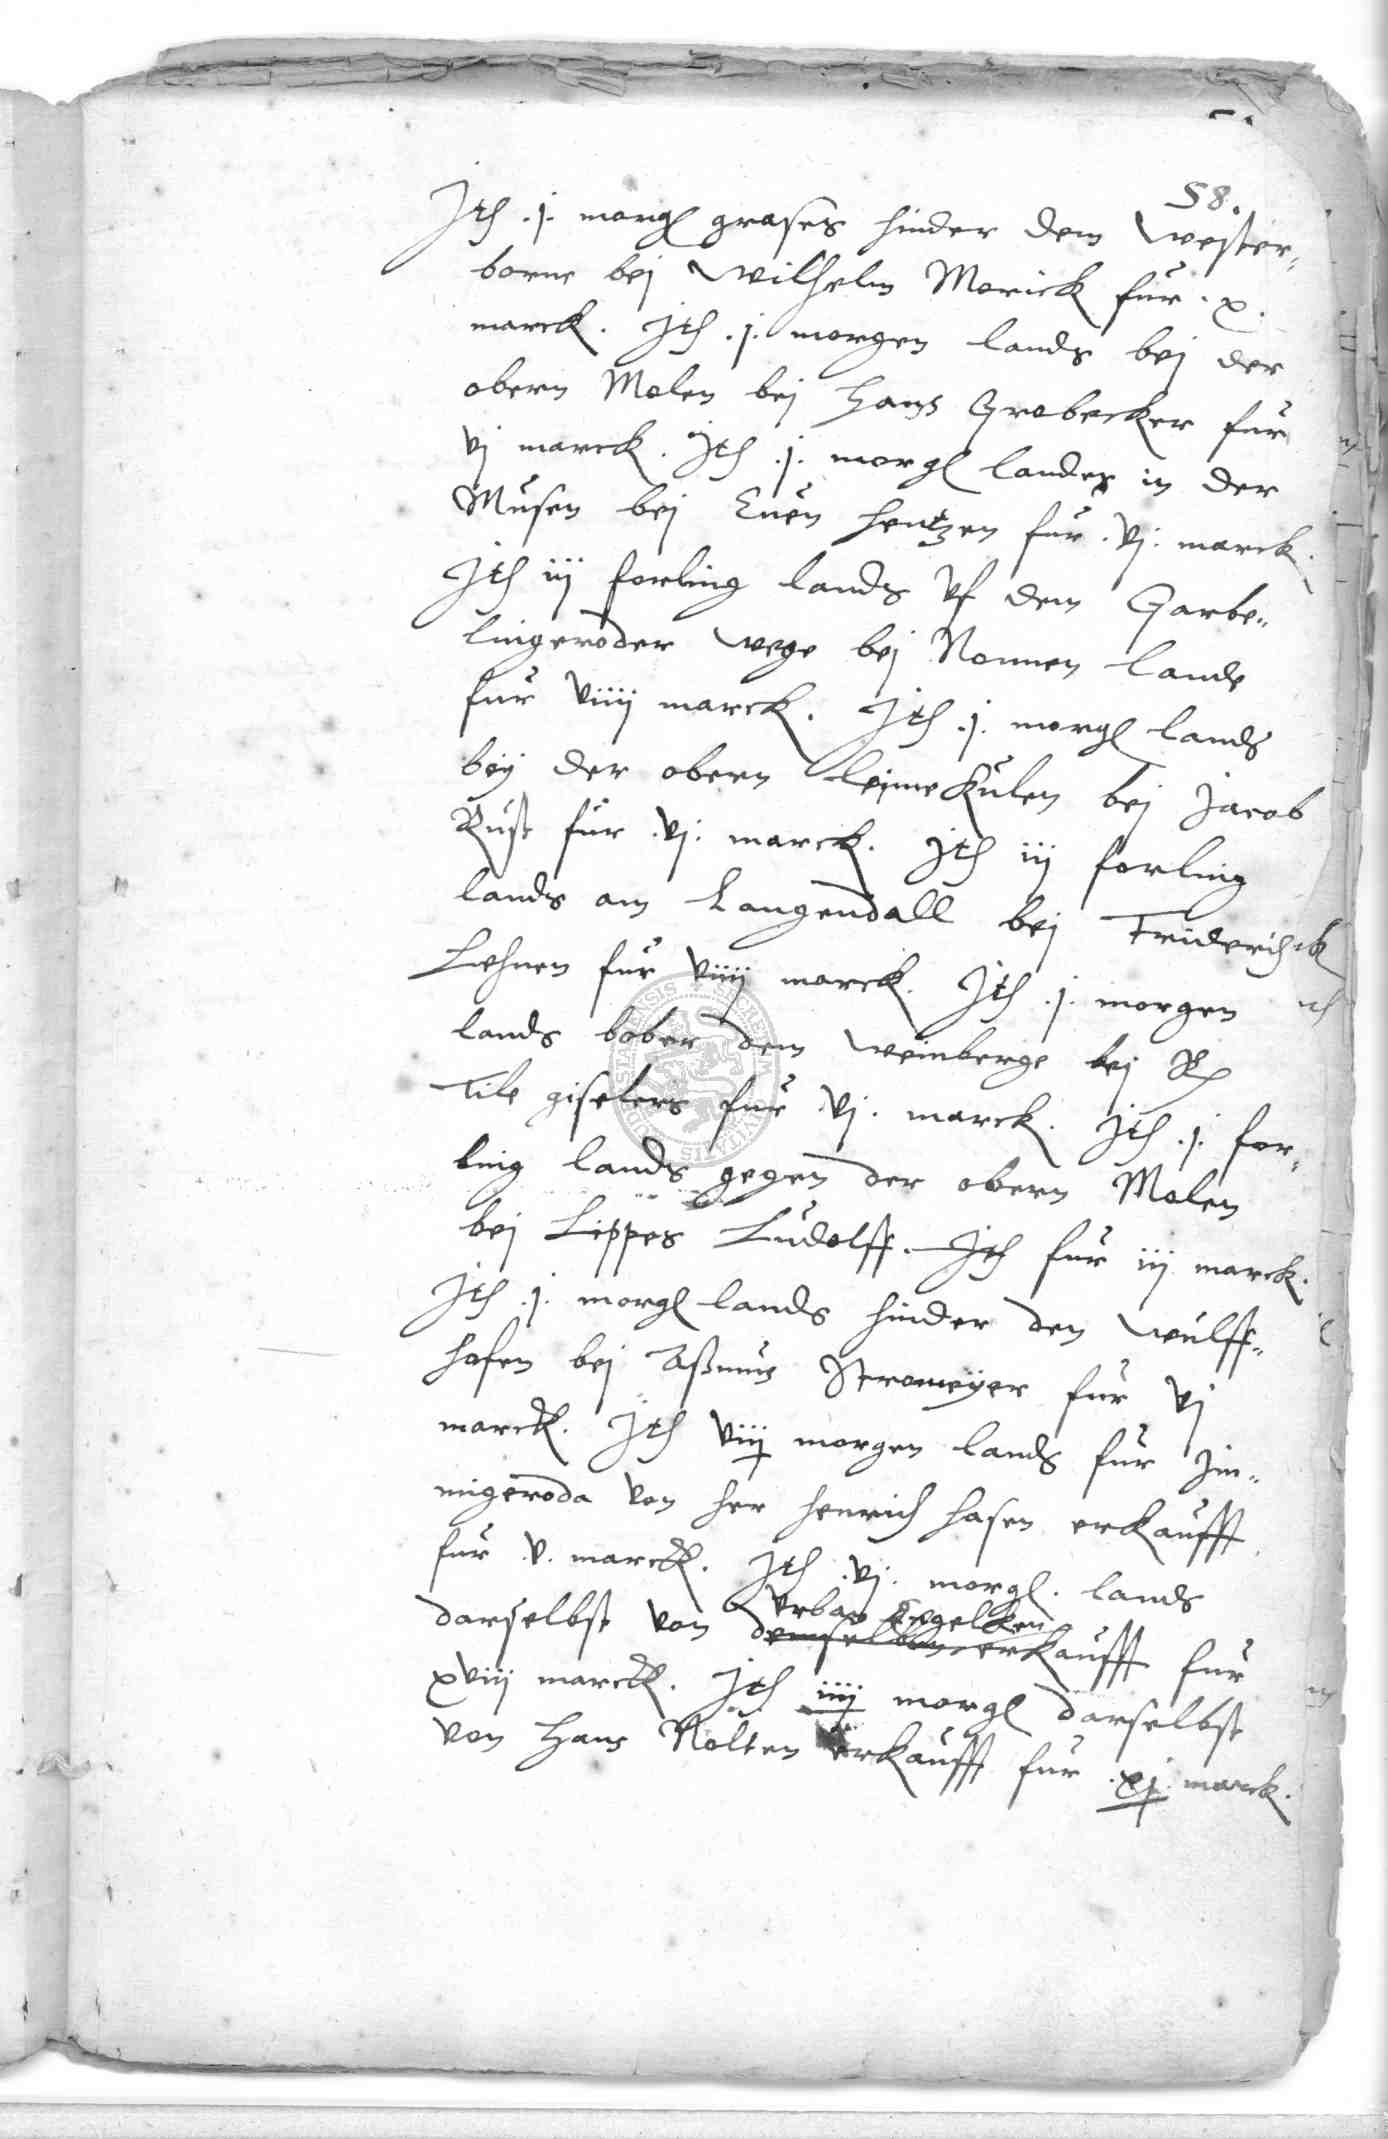 58.
Jth .j. morgl grases hinder dem Wester„
borne bej Wilhelm Morick fur .x.
marck. Jth .j. morgen lands bej der
obern Molen bej Hans Grobecker fur
vj marck. Jth .j. morgl landes in der
Musen bej Euen hentzen fur .vj. marck.
Jth iij forling lands vf dem Garbe„
lingeroder wege bej Nonnen lande
fur viiij marck. Jth .j. morgl lands
beÿ der obern leimekulen bej Jacob
Rust fur .vj. marck. Jth iij forling
lands am Langendall bej Friderichck
Lehnen fur viiij marck. Jth .j. morgen
lands bober dem weinberge bej
Tile giselers fur .vj. marck. Jth .j. for„
ling lands gegen der obern Molen
bej Lippes Ludolff. Jth fur iij marck.
Jth .j. morgl lands hinder den Wulff„
hofen bej Aßmus Stromeÿer fur vj
marck. Jth viij morgen lands fur Jm„
migeroda von her henrich hasen erkaufft
fur .v. marck. Jth .vj. morgl. lands
Vrban Engelken
darselbst von demselben erkaufft fur
xviij marck. Jth iiij morgl darselbst
von Hans Nolten erkaufft fur .xj. marck.